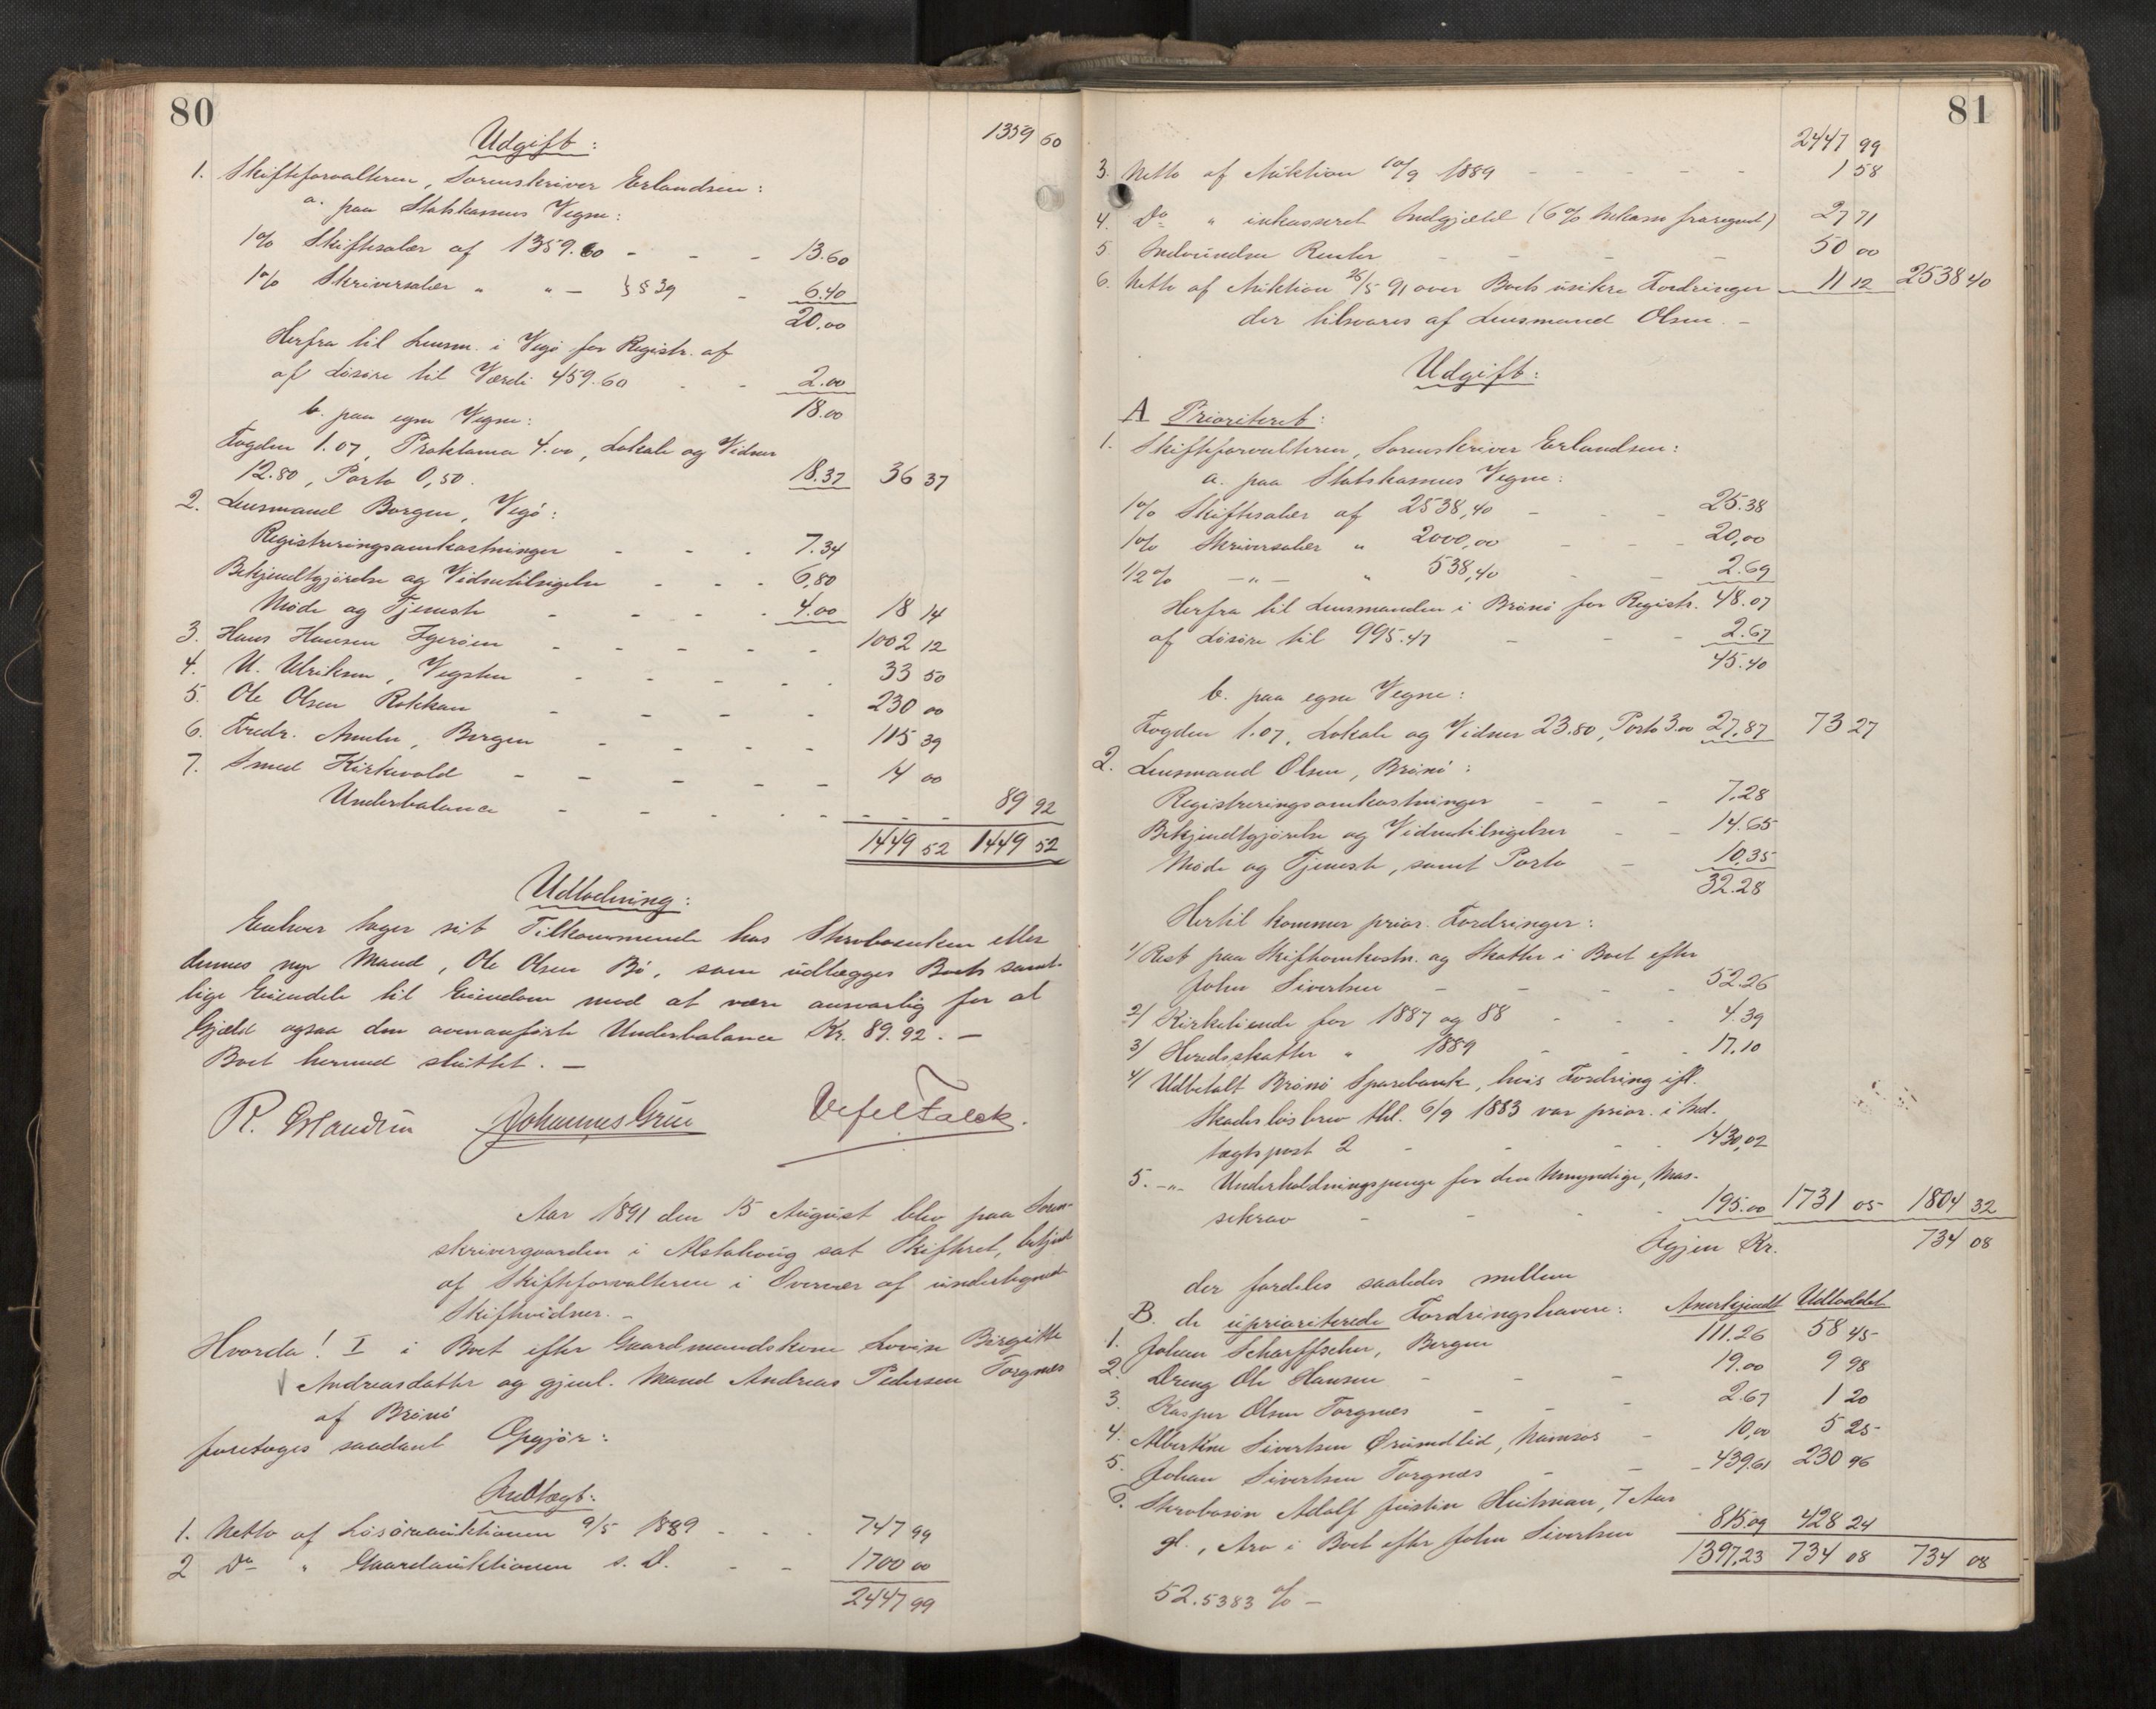 80
1359 60
Udgift:
1. Skifteforvalteren, Sorenskriver Erlandsen:
a. paa Statskassens Vegne:
1% Skiftesalær af 1359.60 - - - 13.60
1% Skriversalær " " - § 39 - 6.40
20.00
Herfra til Lensm. i Vegø for Registr. af
af Løsøre til Værdi 459.60 - - 2.00
18.00
b. paa egne Vegne:
Fogden 1.07, Proklama 4.00, Lokale og Vidner
12.80, Porto 0,50. 18.37 36 37
2. Lensmand Borgen, Vegø:
Registreringsomkostninger - - - 7.34
Bekjendtgjørelse og Vidnetilsigelse - - - 6,80
Møde og Tjeneste - - - - 4.00 18 14
3. Hans Hansen Igerøen - - - - - 1002 12
4. U. Ulriksen, Vegsten - - - - - 33 50
5. Ole Olsen Rokkan - - - - 230 00
6. Fredr. Ameln, Bergen - - - - 115 39
7. Smed Kirkvold - - - - - 14 00
Underbalance - - - - - - - 89 92
1449 52 1449 52
Udlodning:
Enhver tager sit Tilkommende hos Stervboenken eller
dennes nye Mand, Ole Olsen Bø, som udlægges Boets samt-
lige Eiendele til Eiendom mod at være ansvarlig for al
Gjæld ogsaa den ovenanførte Underbalance Kr. 89.92. -
Boet hermed sluttet. -
R. Erlandsen Johannes Grue Falck.
Aar 1891 den 15 August blev paa Soren-
skrivergaarden i Alstahoug sat Skifteret, betjent
af Skifteforvalteren i Overvær af undertegnede
Skiftevidner. -
Hvorda! I i Boet efter Gaardmandskone Lovise Birgitte
Andreasdatter og gjenl. Mand Andreas Pedersen Torgnes
af Brønø
foretoges saadant Opgjør:
Indtægt:
1. Netto af Løsøreauktionen 9/5 1889 - - - 747 99
2 Do " Gaardauktionen s. D. - - 1700 00
2447 99
81
2447 99
3. Netto af Auktion 10/9 1889 - - - - - 1 58
4. Do " inkasseret Indgjæld (6% Inkasso fraregnet) 27 71
5 Indvundne Renter - - - 50 00
6. Netto af Auktion 26/5 91 over Boets usikre Fordringer 11 12 2538 40
der tilsvares af Lensmand Olsen. -
Udgift:
A Prioriteret:
1. Skifteforvalteren, Sorenskriver Erlandsen:
a. paa Statskassens Vegne:
1% Skiftesalær af 2538,40 - - - 25.38
1% Skriversalær " 2000,00 - - - 20,00
1/2% -"- " 538,40 - - 2.69
Herfra til Lensmanden i Brønø for Registr. 48.07
af Løsøre til 995.47 - - - 2.67
45.40
b. paa egne Vegne:
Fogden 1.07, Lokale og Vidner 23.80, Porto 3.00 27,87 73 27
2. Lensmand Olsen, Brønø:
Registreringsomkostninger - - - 7,28
Bekjendtgjørelse og Vidnetilsigelser - - 14.65
Møde og Tjeneste, samt Porto - 10,35
32.28
Hertil kommer prior. Fordringer:
1/ Rest paa Skifteomkostn. og Skatter i Boet efter
John Sivertsen - - - - 52.26
2/ Kirketiende for 1887 og 88 - - - 4.39
3/ Heredsskatter " 1889 - - - 17.10
4/ Udbetalt Brønø Sparebank, hvis Fordring ifl.
Skadesløsbrev thl. 6/9 1883 var prior. i Ind-
tægtspost 2 - - - 1430,02
5. -"- Underholdningspenge for den Umyndige, Mas-
sekrav - - - 195.00 1731 05 1804 32
Igjen Kr. 734 08
der fordeles saaledes mellem
B. de uprioriterede Fordringshavere: Anerkjendt Udloddet
1. Johan Scharffscher, Bergen 111.26 58 45
2. Dreng Ole Hansen - - - 19.00 9 98
3. Kasper Olsen Torgnes - - - 2.67 1 20
4. Albertine Sivertsen Grundlid, Namsos - 10,00 5 25
5. Johan Sivertsen Torgnes - - - 439.61 230 96
6. Stervbosøn Adolf Justin Heitman, 7 Aar
gl., Arv i Boet efter John Sivertsen 815.09 428 24
1397,23 734 08 734 08
52.5383 % -